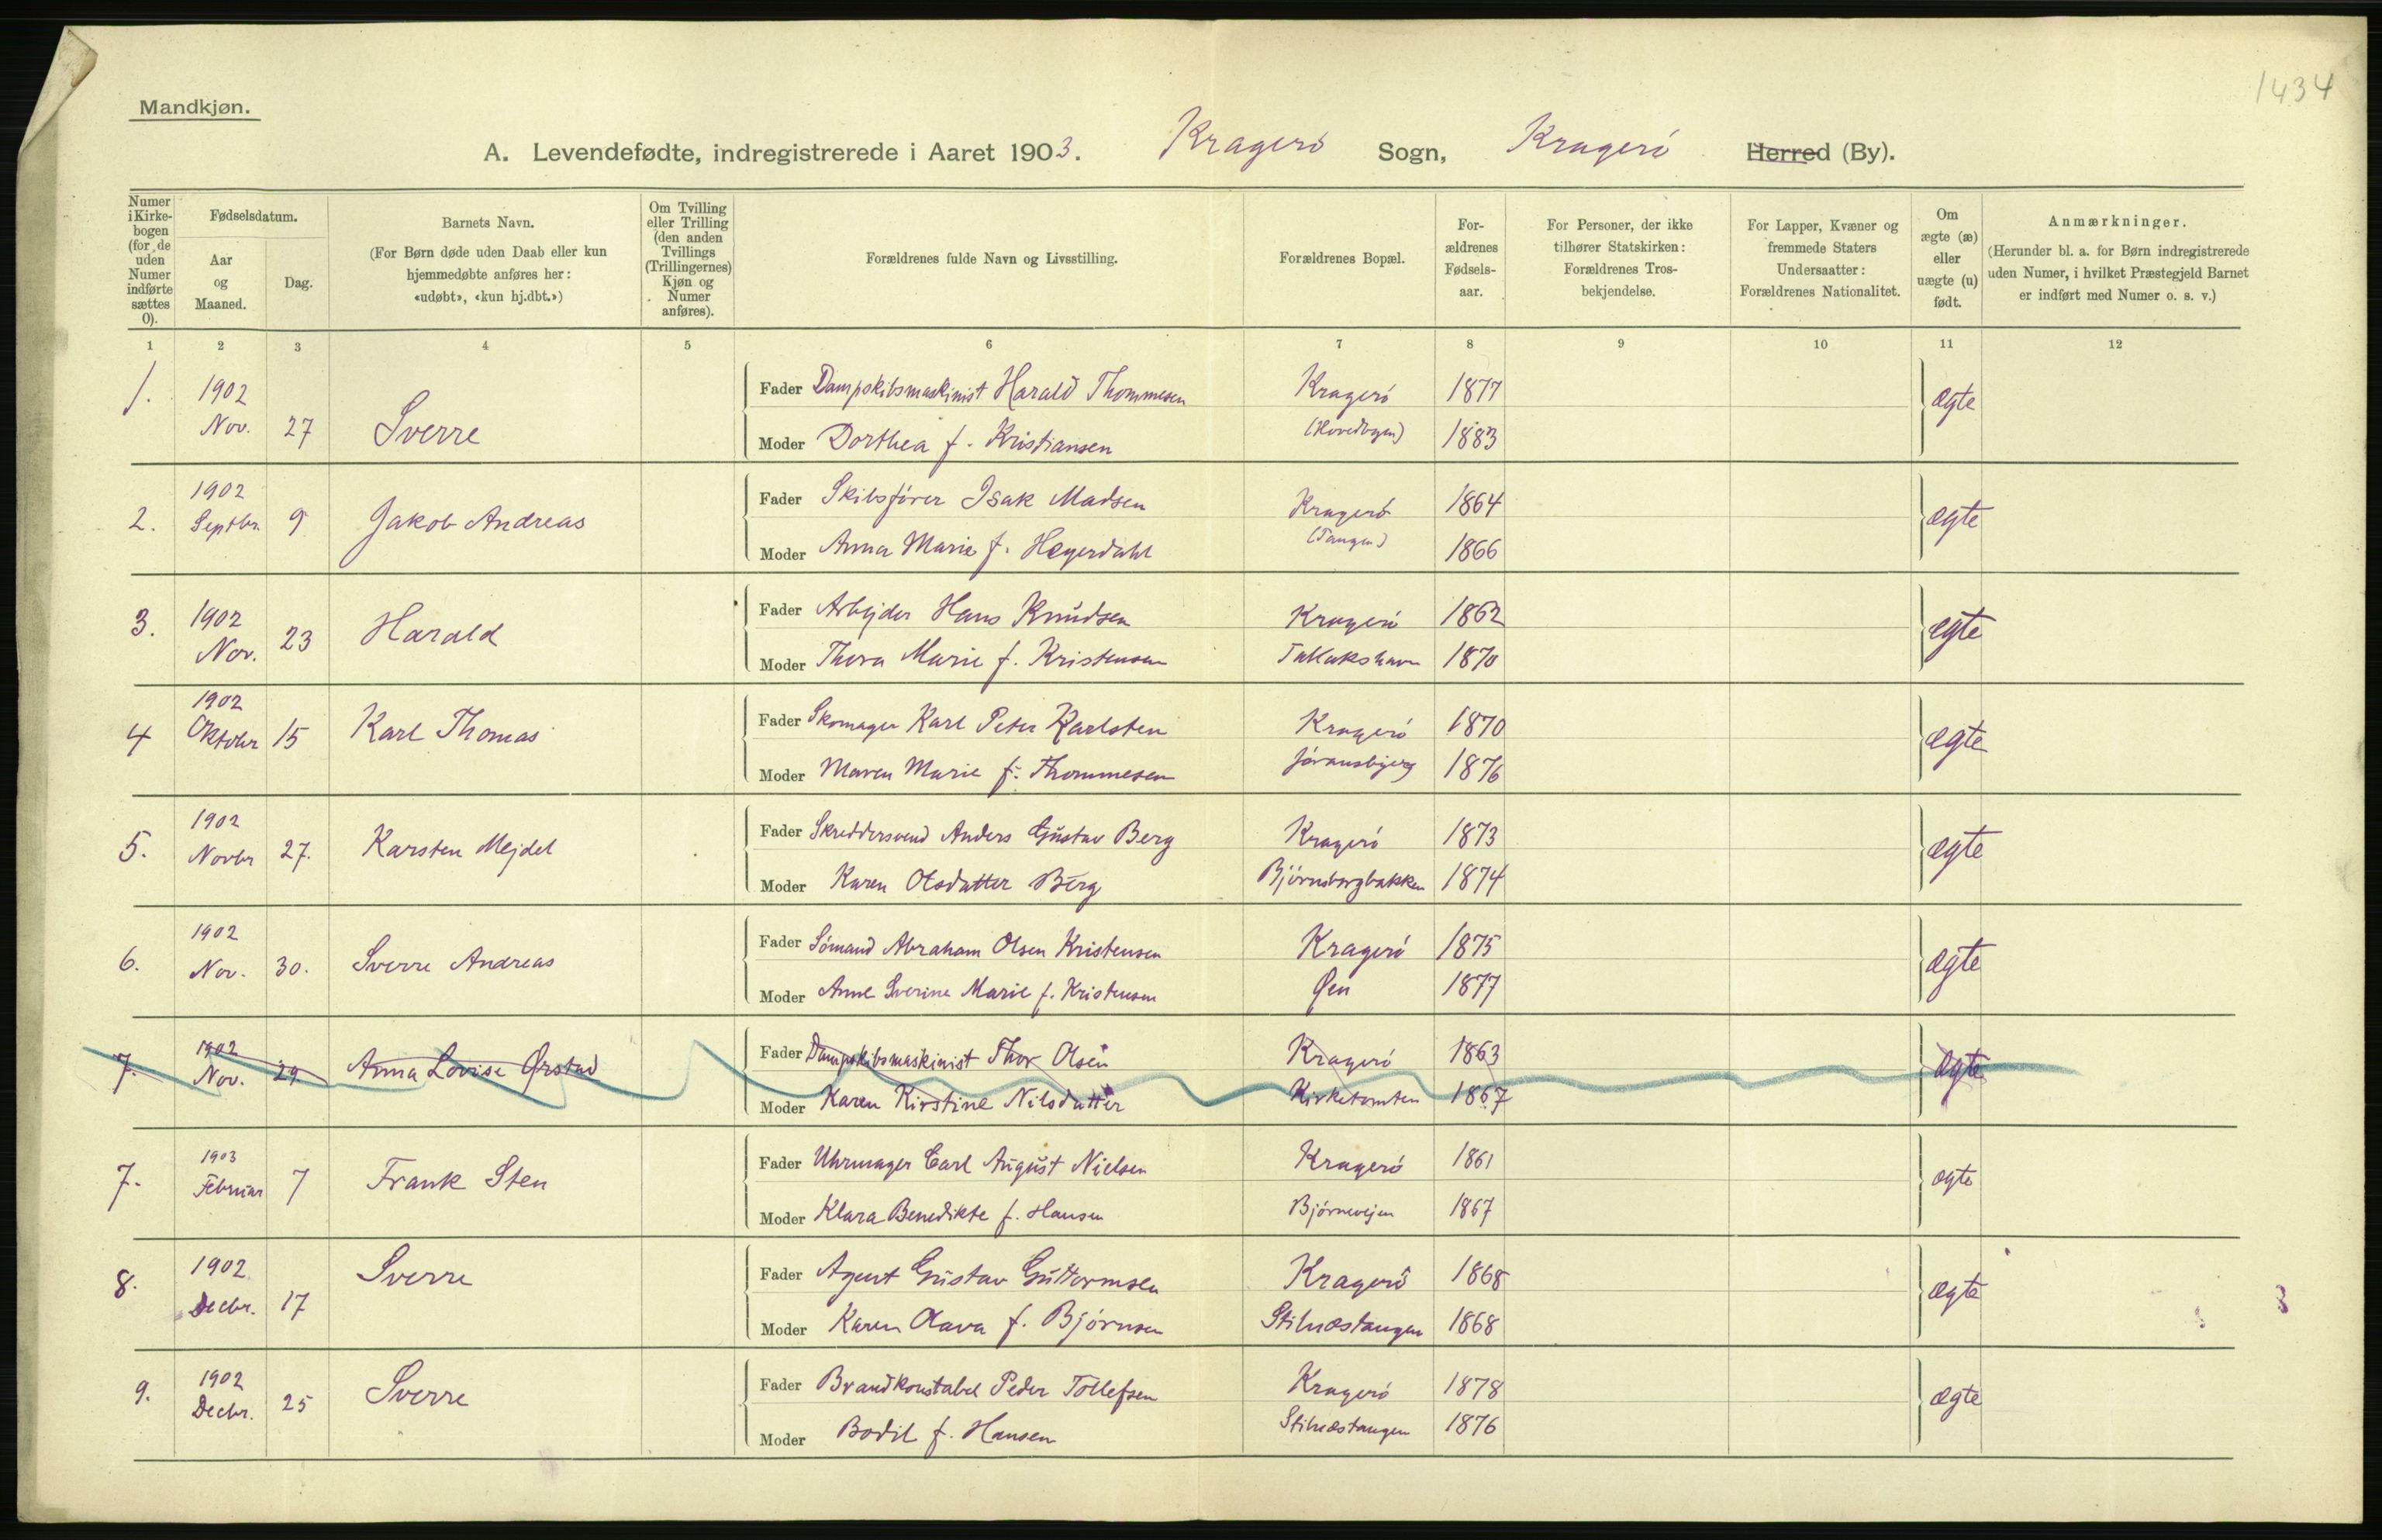 1434
Mandkjøn.
A. Levendefødte, indregistrerede i Aaret 1903. Kragerö Sogn, Kragerö Herred (By).
Numer i Kirke-bogen (for de uden Numer indførte sættes 0).
Fødselsdatum.
Aar og Maaned.
Dag.
Barnets Navn.
(For Børn døde uden Daab eller kun hjemmedøbte anføres her: «udøbt», «kun hj.dbt.»)
Om Tvilling eller Trilling (den anden Tvillings (Trillingernes) Kjøn og Numer anføres).
Forældrenes fulde Navn og Livsstilling.
Forældrenes Bopæl.
For-ældrenes Fødsels-aar.
For Personer, der ikke tilhører Statskirken: Forældrenes Tros-bekjendelse.
For Lapper, Kvæner og fremmede Staters Undersaatter: Forældrenes Nationalitet.
Om ægte (æ) eller uægte (u) født.
Anmærkninger.
(Herunder bl. a. for Børn indregistrerede uden Numer, i hvilket Præstegjeld Barnet er indført med Numer o. s. v.)
1 2 3 4 5 6 7 8 9 10 11 12
1. 1902 Nov. 27 Sverre
Fader Dampskibsmaskinist Harald Thommesen Kragerö 1877 ægte
Moder Dorthea f. Kristiansen (Hovedbyen) 1883
2. 1902 Septbr. 9 Jakob Andreas
Fader Skibsförer Isak Madsen Kragerö 1864 ægte
Moder Anna Marie f. Heyerdahl (Tangen) 1866
3. 1902 Nov. 23 Harald
Fader Arbejder Hans Knudsen Kragerö 1862 ægte
Moder Thora Marie f. Kristensen Tallakshavn 1870
4 1902 Oktober 15 Karl Thomas
Fader Skomager Karl Peter Karlsten Kragerö 1870 ægte
Moder Maren Marie f. Thommesen Jöransbjerg 1876
5. 1902 Novbr 27. Karsten Mejdel
Fader Skreddersvend Anders Gustav Berg Kragerö 1873 ægte
Moder Karen Olsdatter Berg Björnsborgbakken 1874
6. 1902 Nov. 30. Sverre Andreas
Fader Sömand Abraham Olsen Kristensen Kragerö 1875 ægte
Moder Anne Sverine Marie f. Kristensen Øen 1877
7. 1902 Nov. 29. Anna Lovise Ørstad
Fader Dampskibsmaskinist Thor Olsen Kragerö 1863 ægte
Moder Karen Kirstine Nilsdatter Kirketomten 1867
7. 1903 Februar 7 Frank Sten
Fader Uhrmager Carl August Nielsen Kragerö 1861 ægte
Moder Klara Benedikte f. Hansen Björnevejen 1867
8. 1902 Decbr. 17 Sverre
Fader Agent Gustav Guttormsen Kragerö 1868 ægte
Moder Karen Olava f. Björnsen Stilnæstangen 1868
9. 1902 Decbr. 25 Sverre
Fader Brandkonstabel Peder Tollefsen Kragerö 1878 ægte
Moder Bodil f. Hansen Stilnæstangen 1876